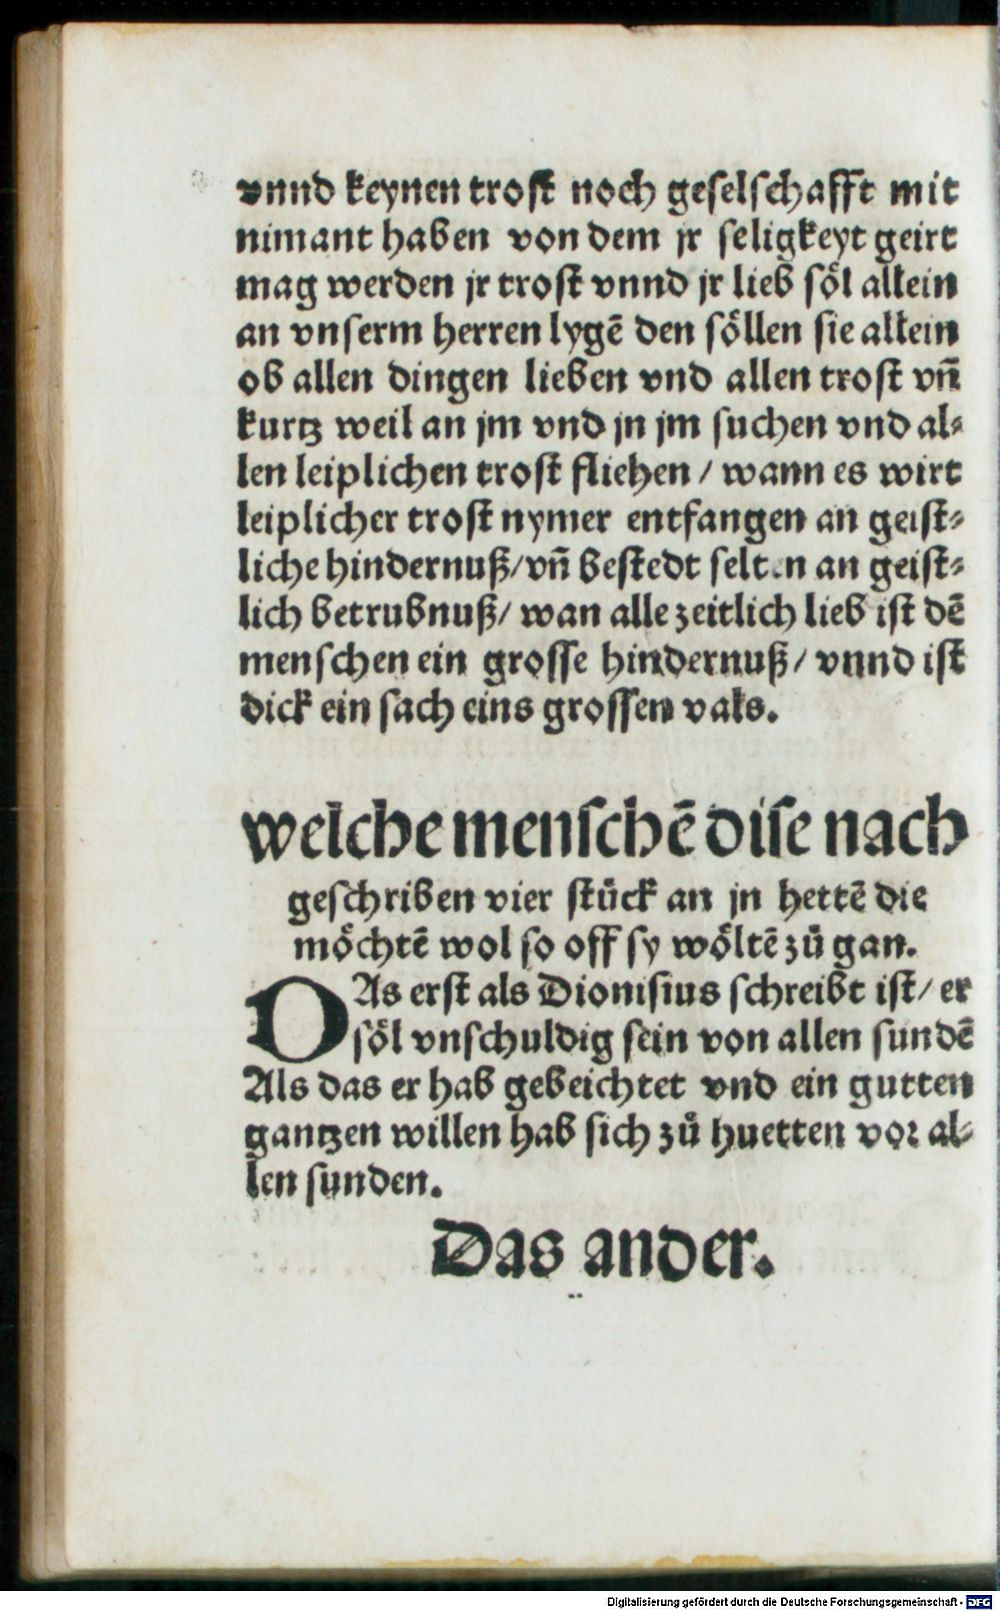 vnnd keynen trost noch geselschafft mit
nimant haben von dem jr seligkeyt geirt
mag werden jr trost vnnd jr lieb söl allein
an vnserm herren lygē den söllen sie allein
ob allen dingen lieben vnd allen trost vn̄
kurtz weil an jm vnd jn jm suchen vnd al⸗
len leiplichen trost fliehen / wann es wirt
leiplicher trost nymer entfangen an geist⸗
liche hindernuß/ vn̄ bestedt selten an geist⸗
lich betrubnuß/ wan alle zeitlich lieb ist dē
menschen ein grosse hindernuß/ vnnd ist
dick ein sach eins grossen vals.
welche menschē dise nach
geschriben vier stu̇ck an jn hettē die
möchtē wol so off sy wöltē zů gan.
DAs erst als Dionisius schreibt ist/ er
söl vnschuldig sein von allen sundē
Als das er hab gebeichtet vnd ein gutten
gantzen willen hab sich zů huetten vor al⸗
len sunden.
Das ander.
Digitalisierung gefördert durch die Deutsche Forschungsgemeinschaft - DFG